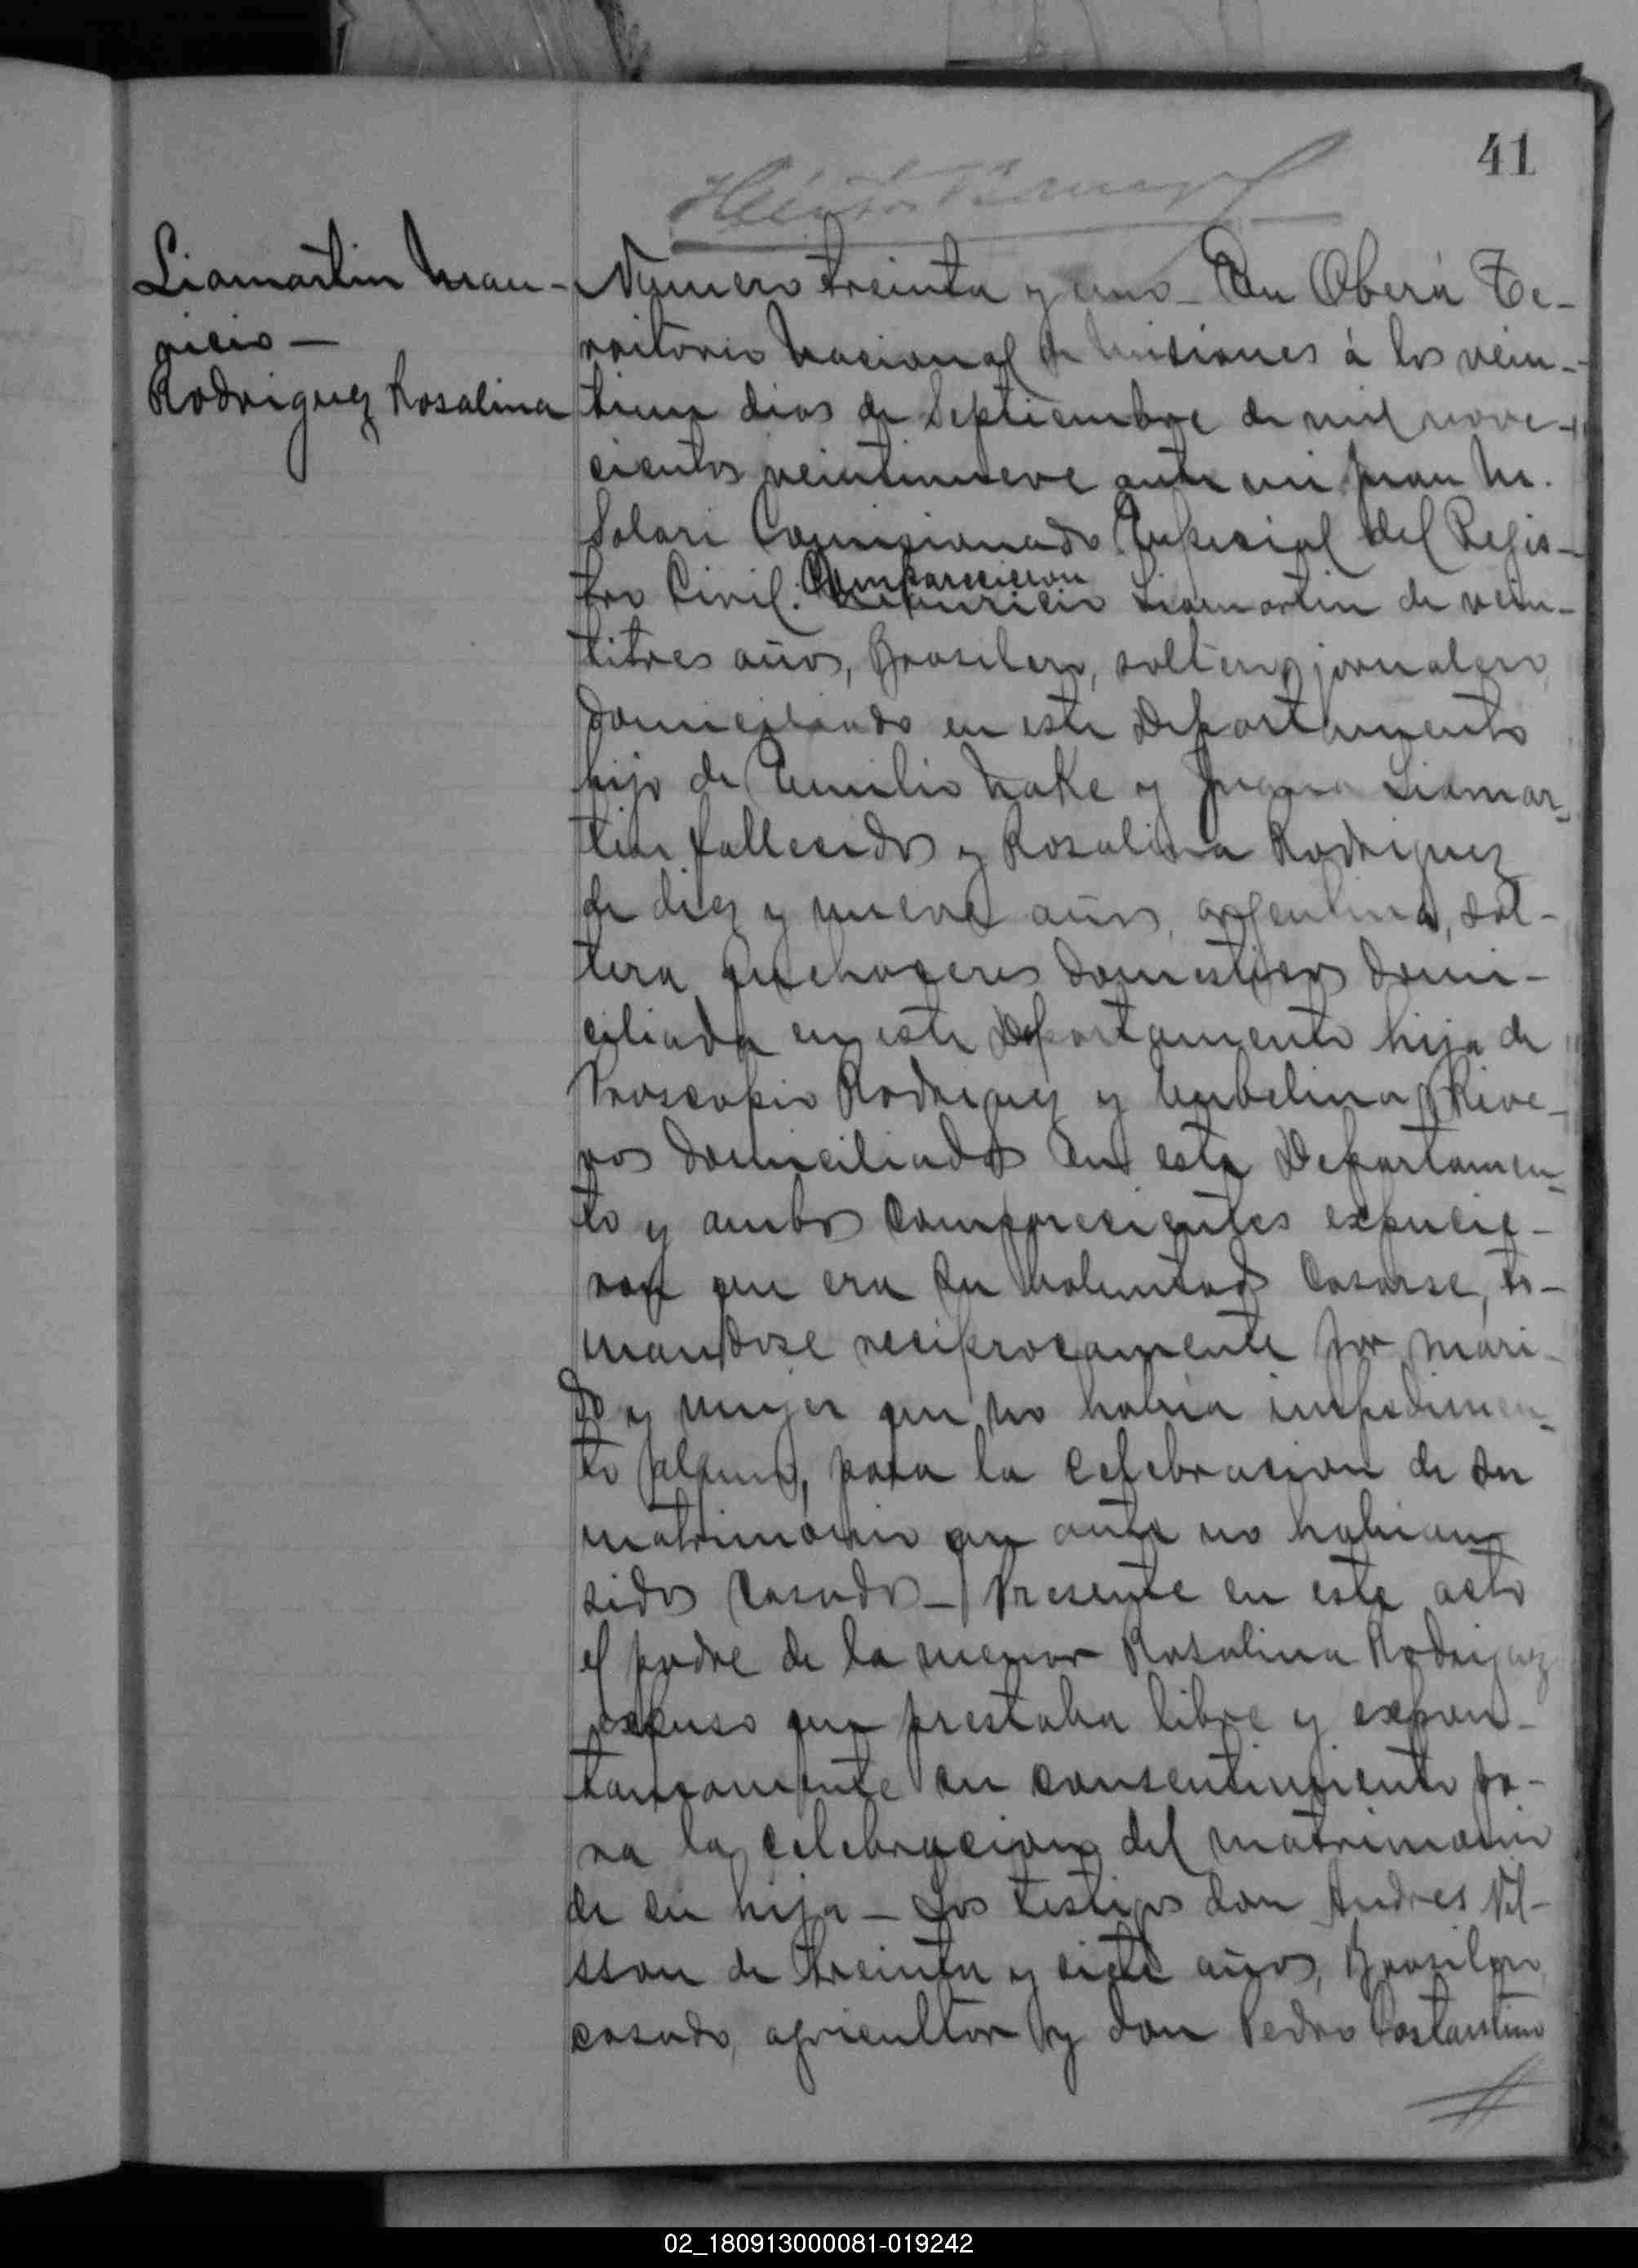 41
Liamartin Mau-
ricio —
Rodriguez Rosalina
Numero treinta y uno — En Oberá Te-
rritorio Nacional de Misiones á los vein-
tiun dias de Septiembre de mil nove-
cientos veintinueve ante mi Juan M.
Solari Comisionado Especial del Regis-
tro Civil: Comparecieron
Mauricio Liamartin de vein-
titres años, Brasilero, soltero, jornalero,
domiciliado en este Departamento
hijo de Emilio Make y Juana Liamar-
tin fallecidos y Rosalina Rodriguez
de diez y nueve años, argentina, sol-
tera quehaceres domesticos domi-
ciliada en este Departamento hija de
Proscopio Rodriguez y Umbelina Rive-
ros domiciliados en este Departamen-
to y ambos comparecientes expucie-
ron que era su voluntad casarse, to-
mandose reciprocamente por mari-
do y mujer que no habia impedimen-
to alguno, para la celebracion de su
matrimonio que ante no habian
sidos casados — Presente en este acto
el padre de la menor Rosalina Rodriguez
expuso que prestaba libre y expon-
taneamente su consentimiento pa-
ra la celebracion del matrimonio
de su hija — Los testigos don Andres Nil-
sson de treinta y siete años, Brasilero,
casado, agricultor y don Pedro Costantino
02_180913000081-019242